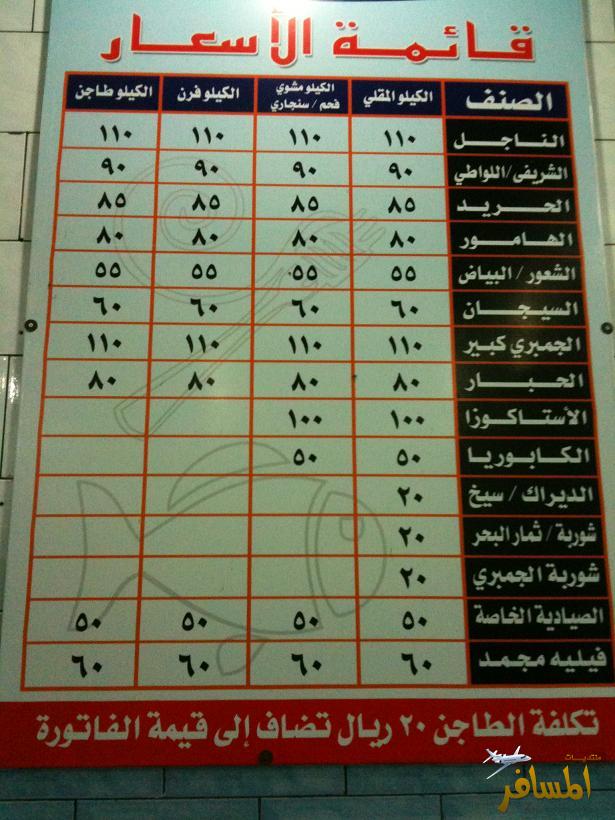 قائمة الأسعار
الصنف الكيلو المقلي الكيلو مشوي فحم / سنجاري الكيلو فرن الكيلو طاجن
الناجل ١١٠ ١١٠ ١١٠ ١١٠
الشريفى/اللواطي ٩٠ ٩٠ ٩٠ ٩٠
الحريد ٨٥ ٨٥ ٨٥ ٨٥
الهامور ٨٠ ٨٠ ٨٠ ٨٠
الشعور / البياض ٥٥ ٥٥ ٥٥ ٥٥
السيجان ٦٠ ٦٠ ٦٠ ٦٠
الجمبري كبير ١١٠ ١١٠ ١١٠ ١١٠
الحبار ٨٠ ٨٠ ٨٠ ٨٠
الأستاكوزا ١٠٠ ١٠٠
الكابوريا ٥٠ ٥٠
الديراك / سيخ ٢٠
شوربة / ثمار البحر ٢٠
شوربة الجمبري ٢٠
الصيادية الخاصة ٥٠ ٥٠ ٥٠ ٥٠
فيليه مجمد ٦٠ ٦٠ ٦٠ ٦٠
تكلفة الطاجن ٢٠ ريال تضاف إلى قيمة الفاتورة
منتديات
المسافر